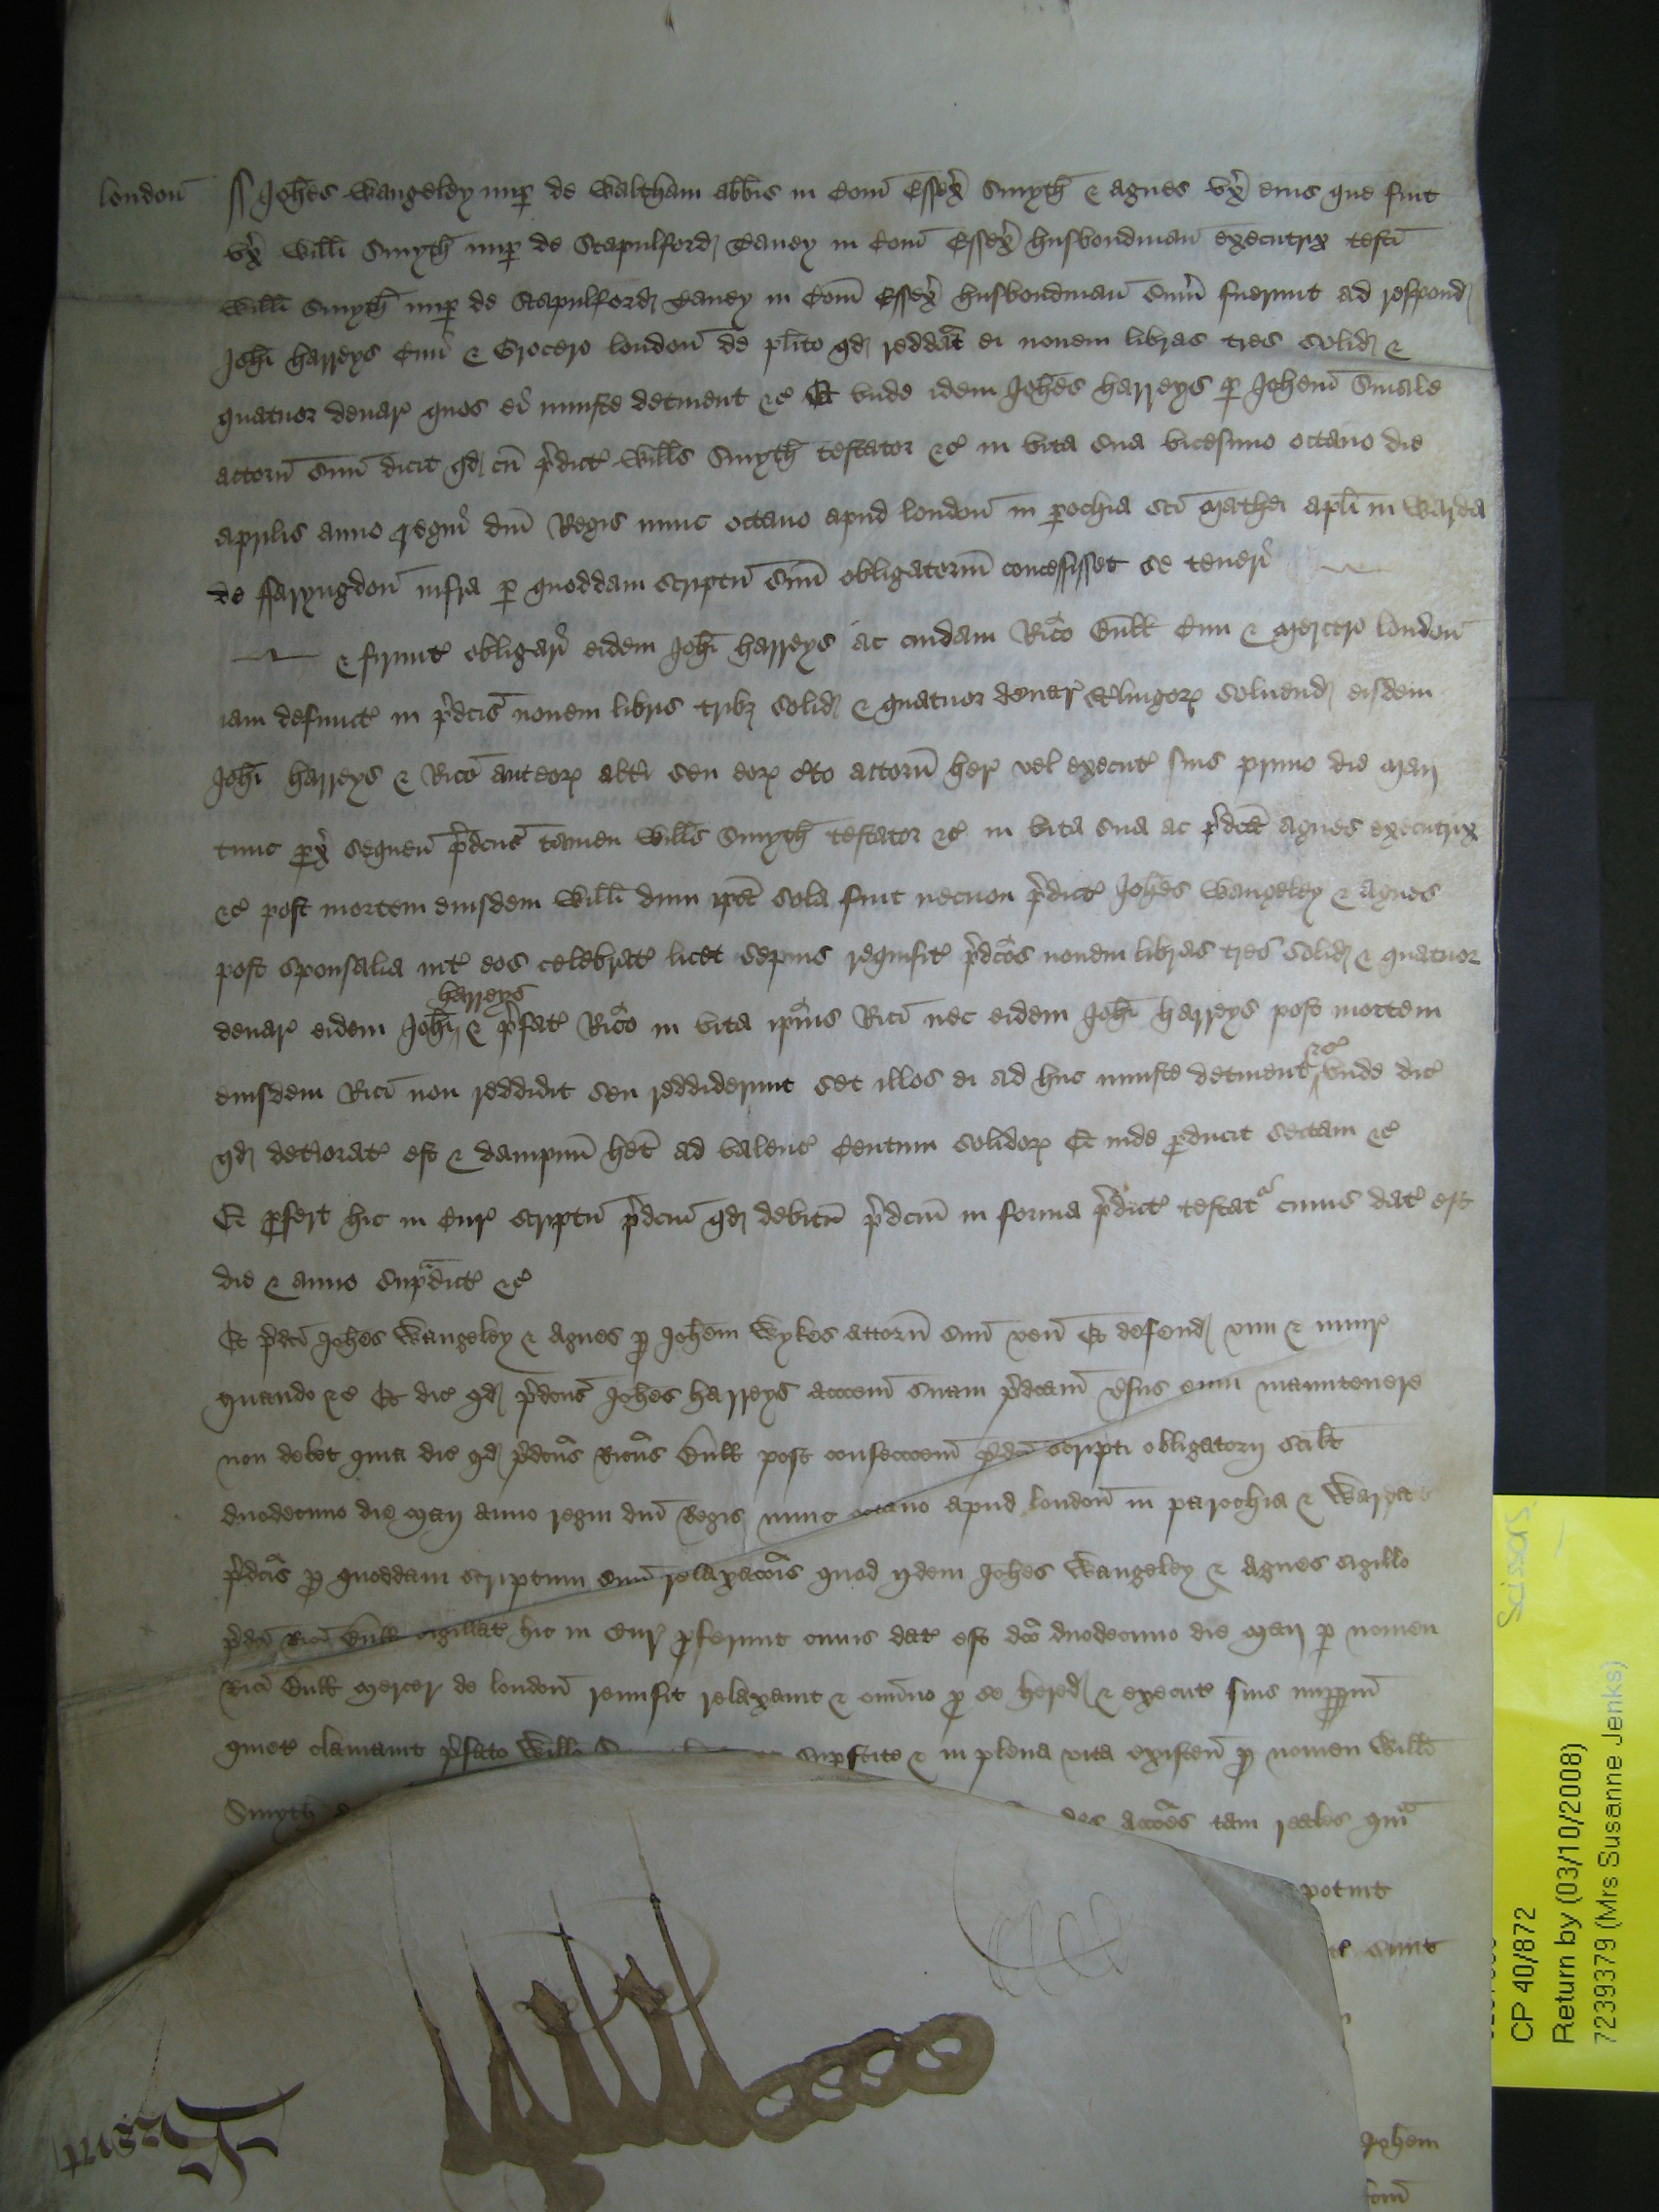 london̄ ss Joh̄es Wangeley nup̱ de Waltham abb̄is in Com̄ Essex̉ Smyth̄ & Agnes vx̉ eius que fuit
vx̉ Will̄i Smyth̄ nup̱ de Stapulford Taney in Com̄ Essex̉ husbondman̄ executrix testi
Will̄i Smyth̄ nup̱ de Stapulford Taney in Com̄ Essex̉ husbondman̄ sum̉ fuerunt ad respond
Joh̄i harreys Ciui & Grocero london̄ de pl̄ito qd reddāt ei nouem libras tres solid &
quatuor denar̉ quos ei iniuste detinent &c̉ Et vnde idem Joh̄es harreys p̱ Joh̄em Smale
attorn̄ suū dicit qd cū p̉dict̉ Will̄s Smyth̄ testator &c̉ in vita sua vicesimo octauo die
aprilis anno regni dn̄i Regis nunc octauo apud london̄ in p̱ochia sc̄i Mathei apl̄i in Warda
de ffaryngdon̄ infra p̱ quoddam scriptū suū obligatoriū concessisset se teneri
& firmit̉ obligari eidem Joh̄i harreys ac cuidam Ric̄o Bulk Ciui & mercer̉ london̄
iam defunct̉ in p̉dc̄is nouem libris trib; solid & quatuor denar̉ st̉lingoꝝ soluend eisdem
Joh̄i harreys & Ric̄o aut eoꝝ alt̉i seu eoꝝ c̉to attorn̄ her̉ vel execut̉ suis primo die Maij
tunc p̱x̉ sequen̄ p̉dc̄us tamen Will̄s Smyth̄ testator &c̉ in vita sua ac p̉dc̄a Agnes executrix
&c̉ post mortem eiusdem Will̄i dum ip̄a sola fuit necnon p̉dict̉ Joh̄es Wangeley & Agnes
post sponsalia int̉ eos celebrat̉ licet sepius requisit̉ p̉dc̄os nouem libras tres solid & quatuor
harreys
denar̉ eidem Joh̄i & p̉fat̉ Ric̄o in vita ip̄ius Ric̄i nec eidem Joh̄i harreys post mortem
&c̉
eiusdem Ric̄i non reddidit seu reddiderunt set illos ei ad huc iniuste detinent vnde dic̉
qd deteriorat̉ est & dampnū h̄et ad valenc̉ Centum solidoꝝ Et inde p̱ducit sectam &c̉
Et p̱fert hic in Cur̉ scriptū p̉dc̄m qd debitū p̉dc̄m in forma p̉dict̉ testat̉ cuius dat̉ est
die & anno sup̱dict̉ &c̉
Et p̉dc̄i Joh̄es Wangeley & Agnes p̱ Joh̄em Wykes attorn̄ suū ven̄ Et defend vim & iniur̉
quando &c Et dic̉ qd p̉dc̄us Joh̄es harreys acc̄oem suam p̉dc̄am v̉sus eum manutenere
non debet quia dic̉ qd p̉dc̄us Ric̄us Bulk post confecc̄oem p̉dc̄i scripti obligatorij scil̄t
duodecimo die Maij anno regni dn̄i Regis nunc octauo apud london̄ in parochia & Warda
p̉dc̄is p̱ quoddam scriptum suū relaxac̄ois quod ijdem Joh̄es Wangeley & Agnes sigillo
p̉dc̄i Ric̄i Bulk sigillat̉ hic in Cur̉ p̱ferunt cuius dat̉ est dc̄o duodecimo die Maij p̱ nomen
Ric̄i Bulk Mercer̉ de london̄ remisit relaxauit & omīno p̱ se hered & execut̉ suis imp̱p̱m
quiet̉ clamauit p̉fato Will̄o sup̱stite & in plena vita existen̄ p̱ nomen Will̄i
Smyth acc̄oes tam reales qm̄
potuit
sunt
Joh̄em
Com̄
Kent
scissors
CP 40/872
Return by (03/10/2008)
7239379 (Mrs Susanne Jenks)